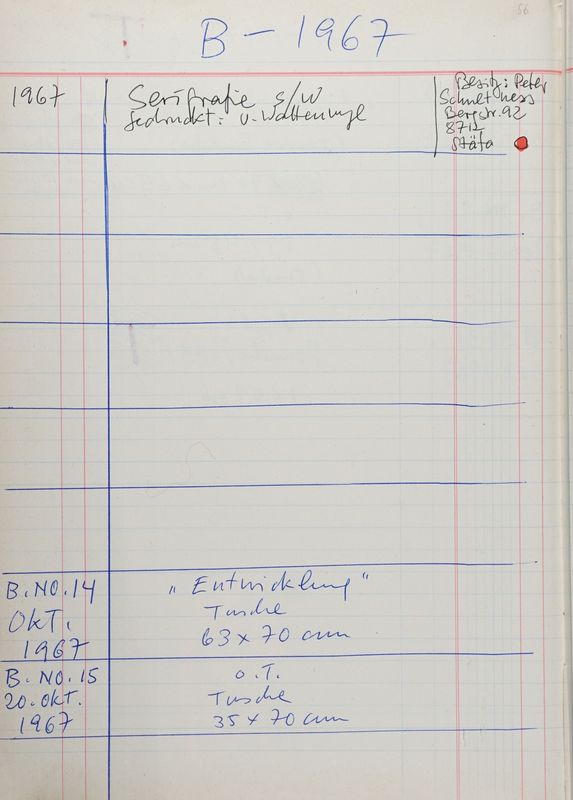 56
B - 1967
1967
Serigrafie s/w
Gedruckt: v. Wattenwyl
Besitz: Peter
Schulthess
Bergstr. 92
8712
Stäfa
B. NO. 14
OKT.
1967
„Entwicklung"
Tusche
63 x 70 cm
B. NO. 15
20. OKT.
1967
o.T.
Tusche
35 x 70 cm